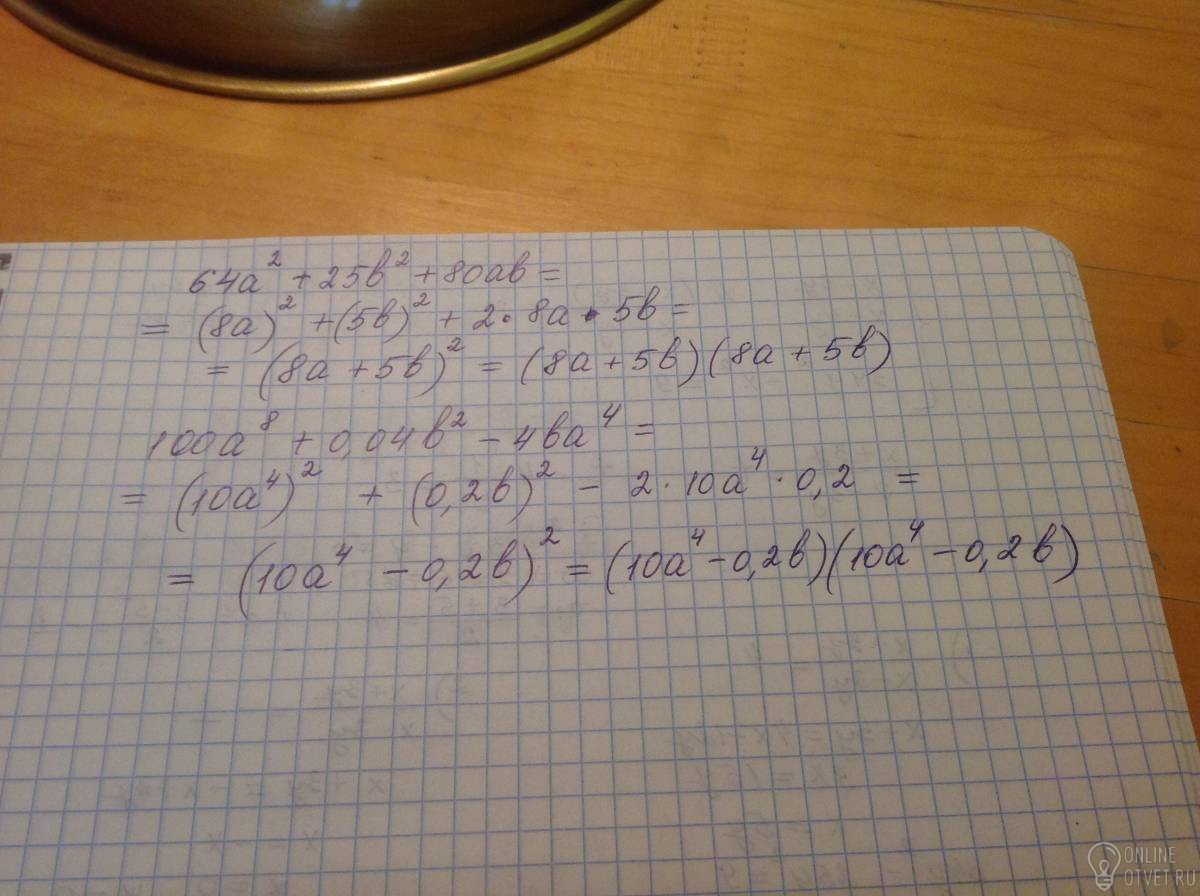 64a² + 25b² + 80ab =
= (8a)² + (5b)² + 2 · 8a · 5b =
= (8a + 5b)² = (8a + 5b)(8a + 5b)
100a⁸ + 0,04b² - 4ba⁴ =
= (10a⁴)² + (0,2b)² - 2 · 10a⁴ · 0,2 =
= (10a⁴ - 0,2b)² = (10a⁴ - 0,2b)(10a⁴ - 0,2b)
ONLINE
OTVET.RU